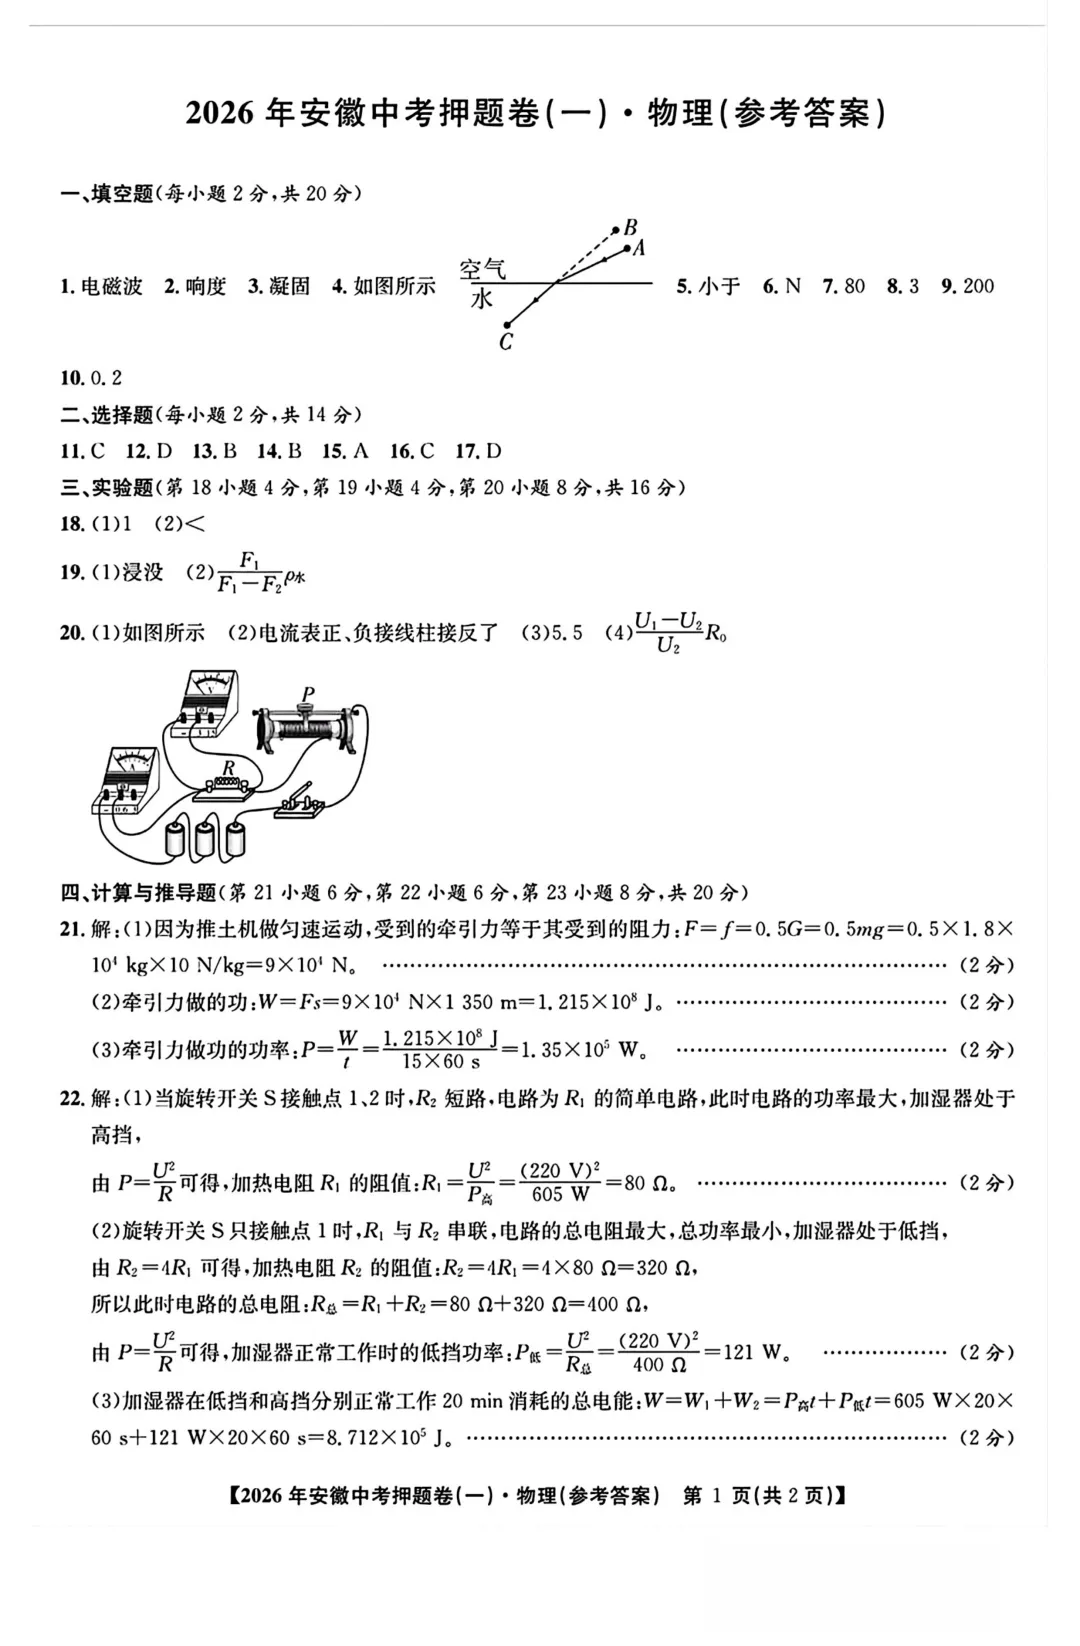 2026 年安徽中考押题卷(一)·物理(参考答案)
一、填空题(每小题 2 分,共 20 分)
B
A
空气
水
C
1. 电磁波 2. 响度 3. 凝固 4. 如图所示 5. 小于 6. N 7. 80 8. 3 9. 200
10. 0. 2
二、选择题(每小题 2 分,共 14 分)
11. C 12. D 13. B 14. B 15. A 16. C 17. D
三、实验题(第 18 小题 4 分,第 19 小题 4 分,第 20 小题 8 分,共 16 分)
18. (1)1 (2)<
19. (1)浸没 (2)F₁/(F₁-F₂)ρ水
20. (1)如图所示 (2)电流表正、负接线柱接反了 (3)5. 5 (4)(U₁-U₂)/U₂ R₀
V
P
A
R
四、计算与推导题(第 21 小题 6 分,第 22 小题 6 分,第 23 小题 8 分,共 20 分)
21. 解:(1)因为推土机做匀速运动,受到的牵引力等于其受到的阻力:F=f=0. 5G=0. 5mg=0. 5×1. 8×
10⁴ kg×10 N/kg=9×10⁴ N。 …… (2 分)
(2)牵引力做的功:W=Fs=9×10⁴ N×1 350 m=1. 215×10⁸ J。 …… (2 分)
(3)牵引力做功的功率:P=W/t=1. 215×10⁸ J/15×60 s=1. 35×10⁵ W。 …… (2 分)
22. 解:(1)当旋转开关 S 接触点 1、2 时,R₂ 短路,电路为 R₁ 的简单电路,此时电路的功率最大,加湿器处于
高挡,
由 P=U²/R可得,加热电阻 R₁ 的阻值:R₁=U²/P高=(220 V)²/605 W=80 Ω。 …… (2 分)
(2)旋转开关 S 只接触点 1 时,R₁ 与 R₂ 串联,电路的总电阻最大,总功率最小,加湿器处于低挡,
由 R₂=4R₁ 可得,加热电阻 R₂ 的阻值:R₂=4R₁=4×80 Ω=320 Ω,
所以此时电路的总电阻:R总=R₁+R₂=80 Ω+320 Ω=400 Ω,
由 P=U²/R可得,加湿器正常工作时的低挡功率:P低=U²/R总=(220 V)²/400 Ω=121 W。 …… (2 分)
(3)加湿器在低挡和高挡分别正常工作 20 min 消耗的总电能:W=W₁+W₂=P高t+P低t=605 W×20×
60 s+121 W×20×60 s=8. 712×10⁵ J。 …… (2 分)
【2026 年安徽中考押题卷(一)·物理(参考答案) 第 1 页(共 2 页)】